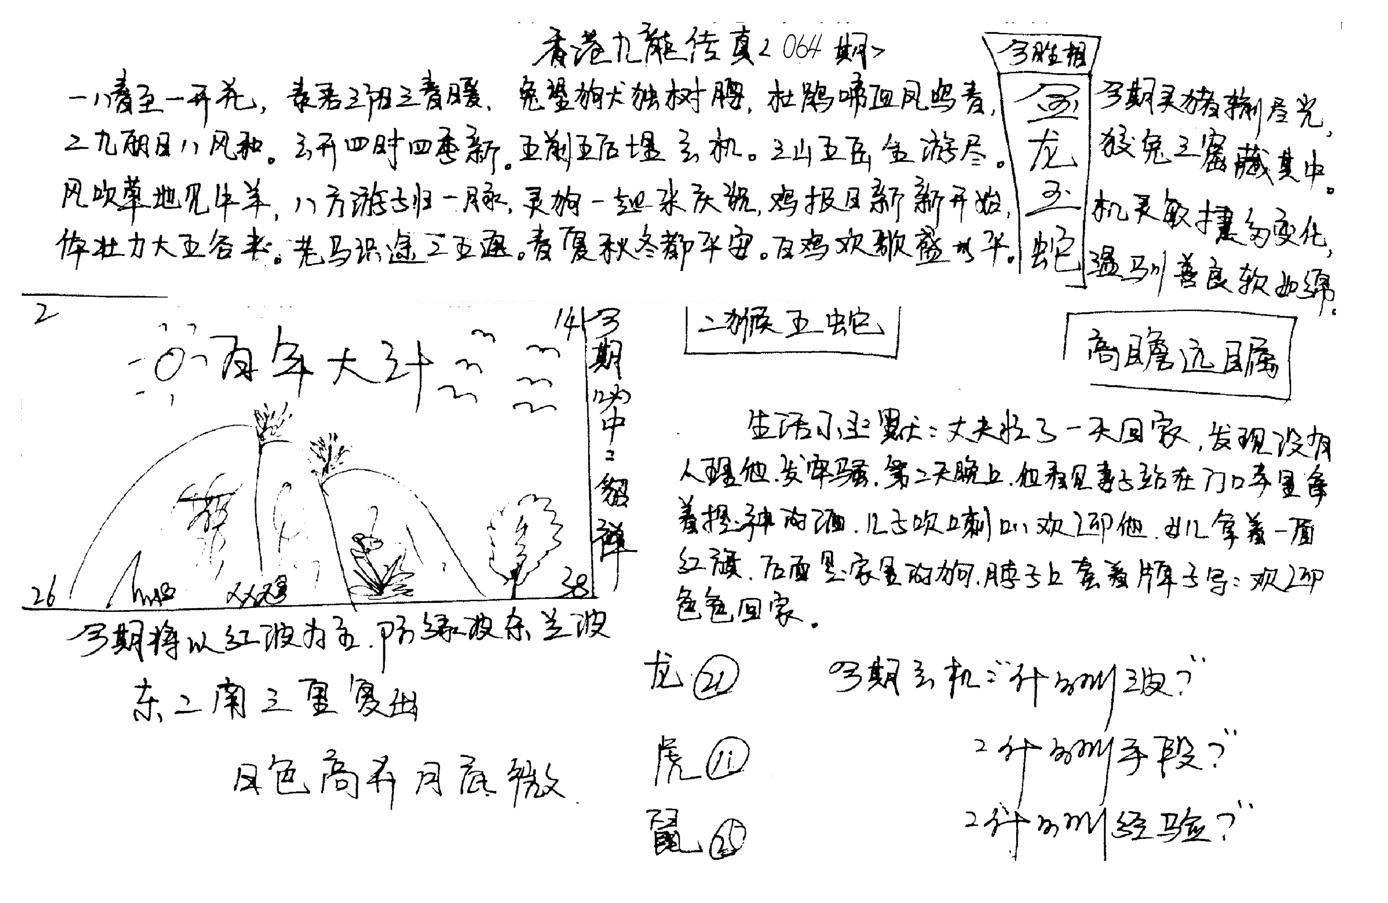 香港九龍传真＜064期＞
一八春至一开花，春居三阳三春暖．兔望狗犬独树腰，杜鹃啼血凤鸣春，
二九丽日八风和。玄开四时四季新。五前五后埋玄机。三山五岳全游尽。
风吹草地见牛羊，八方游子归一脉，灵狗一起来庆祝，鸡报日新新开始，
体壮力大五谷来。老马识途三五遍。春夏秋冬都平安。百鸡欢歌盛水平。
今胜相
金
龙
玉
蛇
今期灵猪输尽光，
狡兔三窟藏其中。
机灵敏捷多变化，
温驯善良软如绵。
2
14
百年大计
26
38
今期必中二组详
二猴五蛇
高瞻远瞩
生活小幽默：丈夫忙了一天回家，发现没有
人理他．发牢骚．第二天晚上．他看见妻子站在门口手里拿
着提神的酒．儿子吹喇叭欢迎他．女儿拿着一面
红旗．后面是家里的狗．脖子上套着牌子写：欢迎
爸爸回家。
今期将以红波为主．防绿波东兰波
东二南三里复出
日色高升月底微
龙 21
虎 11
鼠 25
今期玄机："什么叫波？"
"什么叫手段？"
"什么叫经验？"